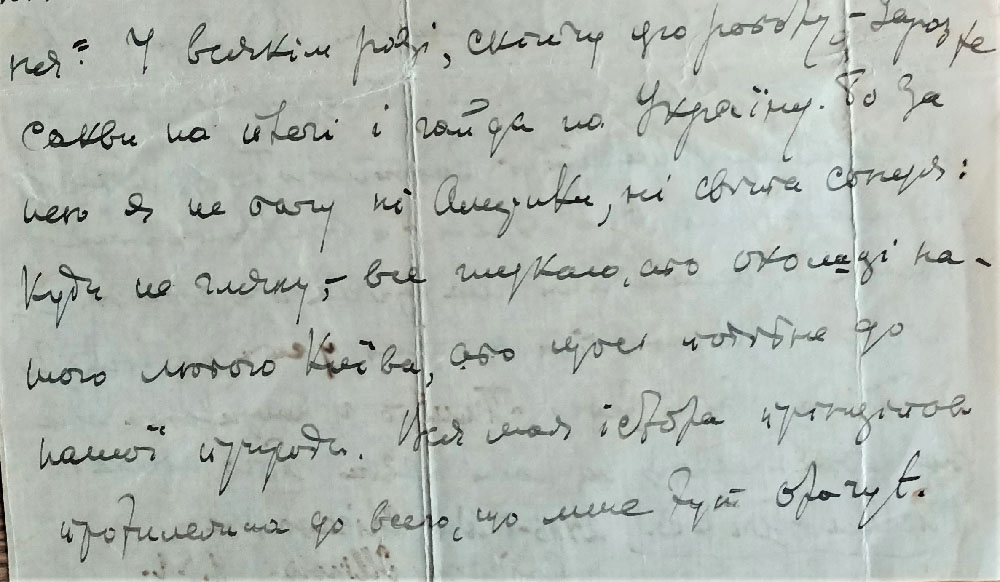 ня? У всякім разі, скінчу цю роботу, – зараз же
сакви на плечі і гайда на Україну. Бо за
нею я не бачу ні Америки, ні світа сонця:
Куди не гляну, – все шукаю, або околиці на-
шого любого Київа, або щось подібне до
нашої природи. Вся моя істота
протилежна до всего, що мене тут оточує.